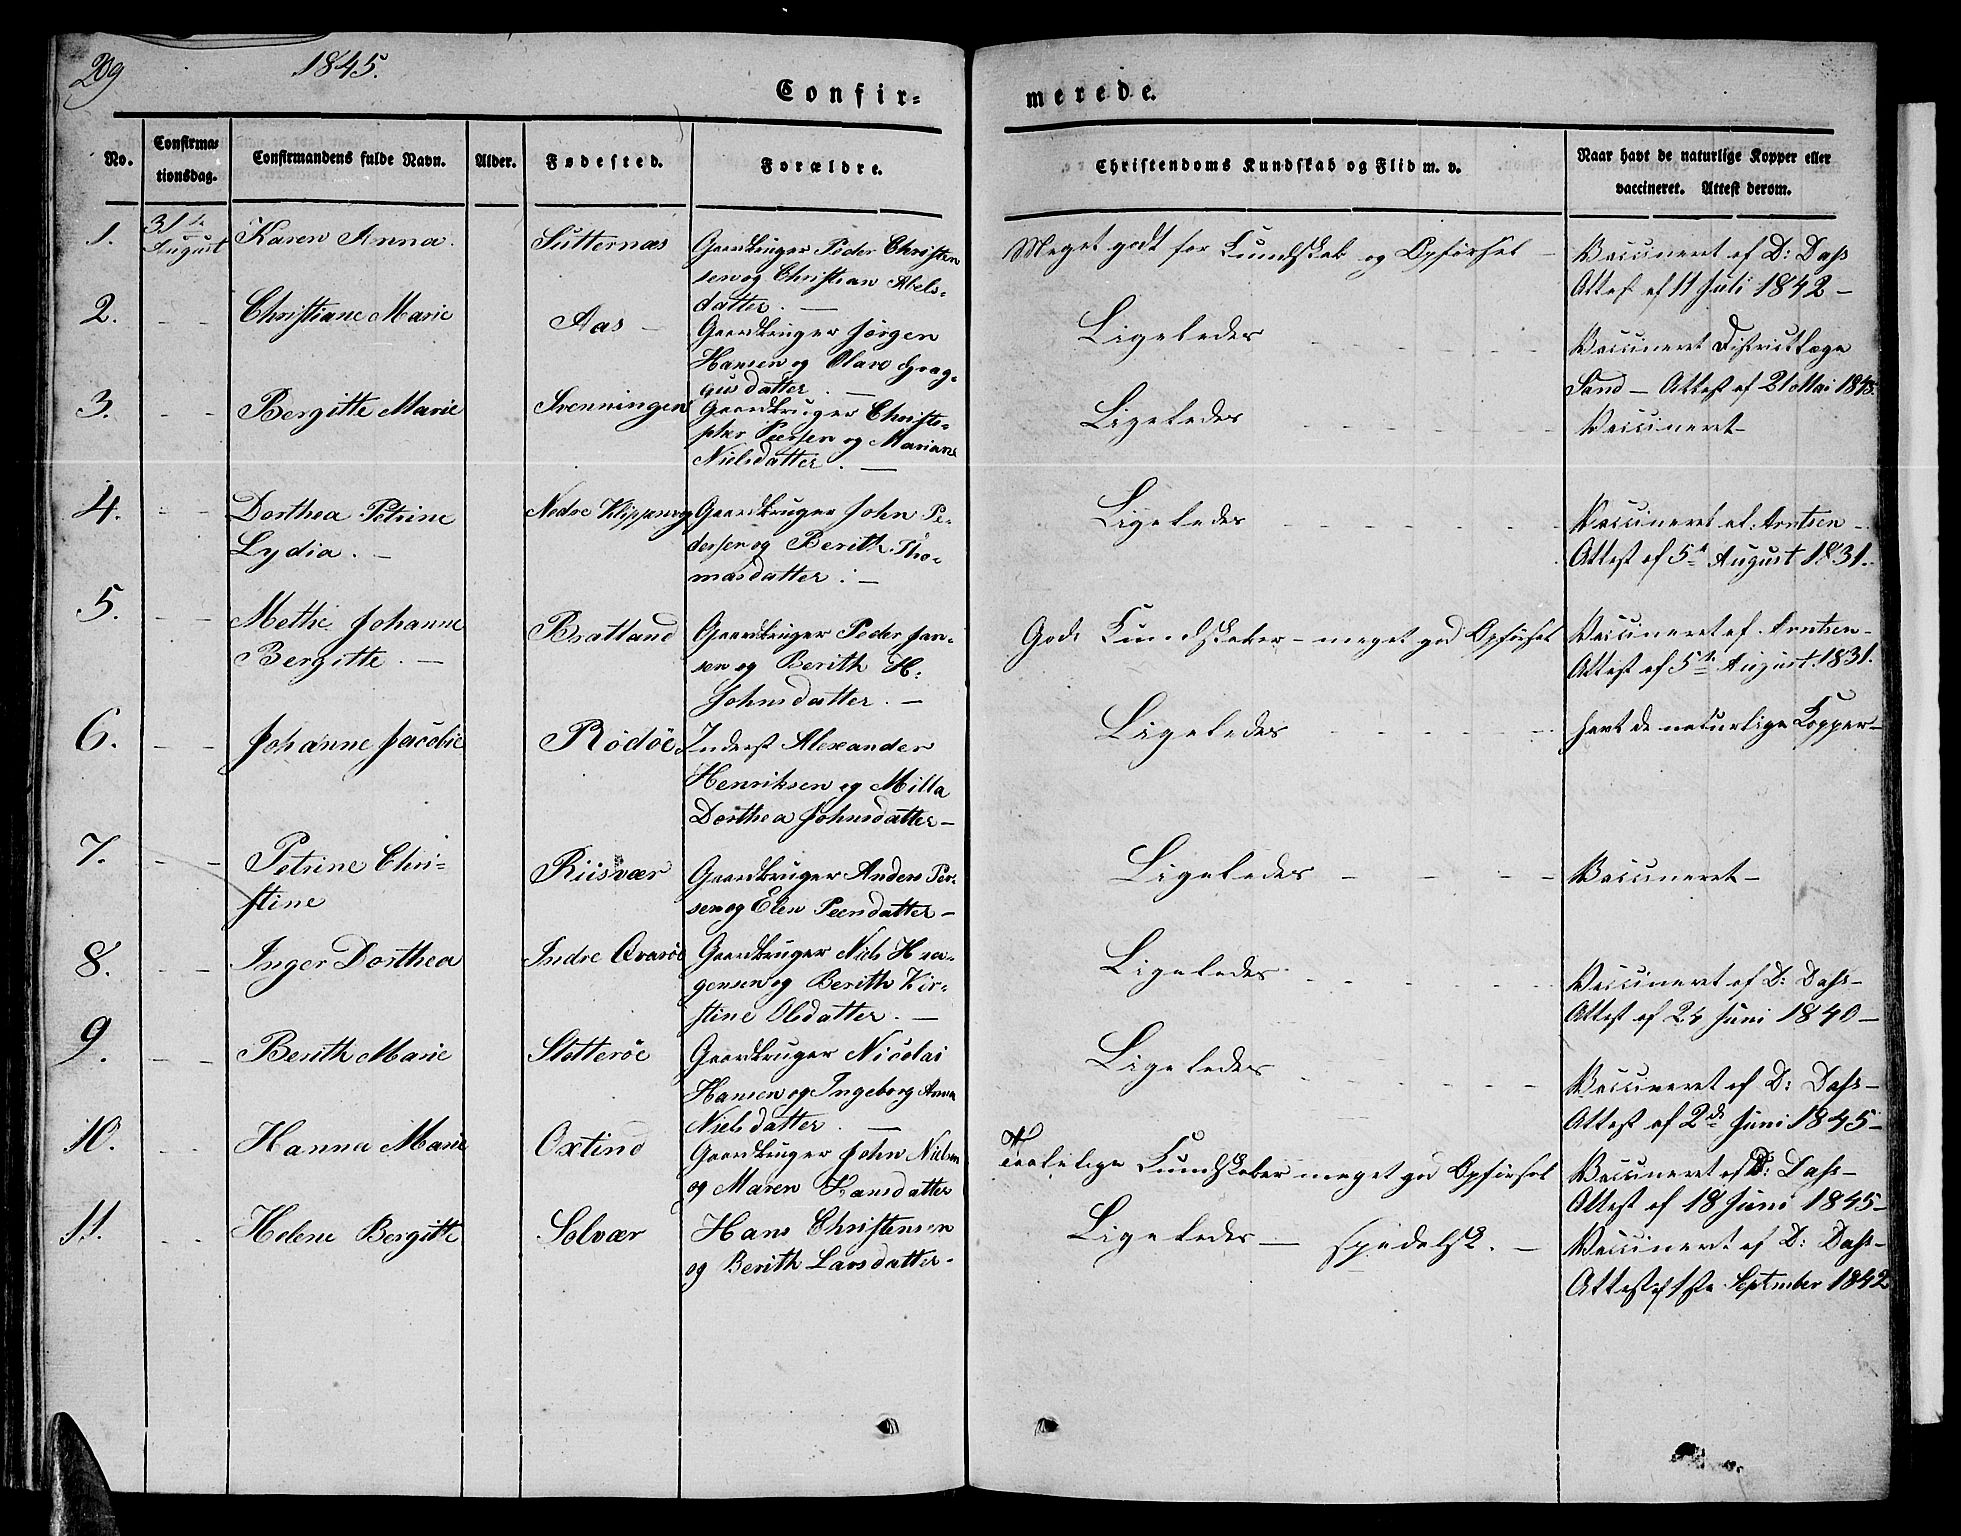 29
1845.
Confir-
merede.
No.
Confirma-
tionsdag.
Confirmandens fulde Navn.
Alder.
Fødested.
Forældre.
Christendoms Kundskab og Flid m. v.
Naar havt de naturlige Kopper eller
vaccineret. Attest derom.
1.
31te
August
Karen Anna.
Sutternæs
Gaardbruger Peder Christen
sen og Christian Abels-
datter. —
Meget godt for Kundskab og Opførsel —
Vaccineret af D: Dass
Attest af 11 Juli 1842 —
2.
- -
Christiane Marie
Aas —
Gaardbruger Jørgen
Hansen og Olave
datter. —
Ligeledes - - - - - -
Vaccineret Districtlæge
Sand — Attest af 21 Mai 1845.
3.
- -
Bergitte Marie
Svenningen
Gaardbruger Christo-
pher Peersen og Mariane
Nielsdatter. —
Ligeledes - - - - - -
Vaccineret —
4.
- -
Dorthea Petrine
Lydia. —
Nedre
Gaardbruger John Pe-
dersen og Berith Tho-
masdatter. —
Ligeledes - - - - - -
Vaccineret af: Arntsen —
Attest af 5te August 1831.
5.
- -
Methe Johanne
Bergitte. —
Bratland
Gaardbruger Peder Jan-
sen og Berith H:
Johnsdatter. —
Gode Kundskaber — meget god Opførsel
Vaccineret af. Arntsen —
Attest af 5te August. 1831.
6.
- -
Johanne Jacobie
Rödöe
Inderst Alexander
Henriksen og Milla
Dorthea Johnsdatter —
Ligeledes - - - - -
havt de naturlige Kopper —
7.
- -
Petrine Chri-
stine
Riisvær
Gaardbruger Anders Per-
sen og Elen Peersdatter —
Ligeledes - - - -
Vaccineret —
8.
- -
Inger Dorthea
Indre Qvarøe
Gaardbruger Niels Haa-
gensen og Berith Kir-
stine Olsdatter. —
Ligeledes - - - - - -
Vaccineret af D: Dass —
Attest af 24 Juni 1840 —
9.
- -
Berith Marie
Slotterøe
Gaardbruger Nicolai
Hansen og Ingeborg Anna
Nielsdatter. —
Ligeledes - - - - - -
Vaccineret af D: Dass —
Attest af 2de Juni 1845 —
10.
- -
Hanna Marie
Oxtind
Gaardbruger John Nielsen
og Maren Hansdatter
Taalelige Kundskaber meget god Opførsel
Vaccineret af D: Dass —
Attest af 18 Juni 1845 —
11.
- -
Helene Bergitte
Solvær
Hans Christensen
og Berith Larsdatter.
Ligeledes — spedalsk. —
Vaccineret af D: Dass —
Attest af 1ste September 1842